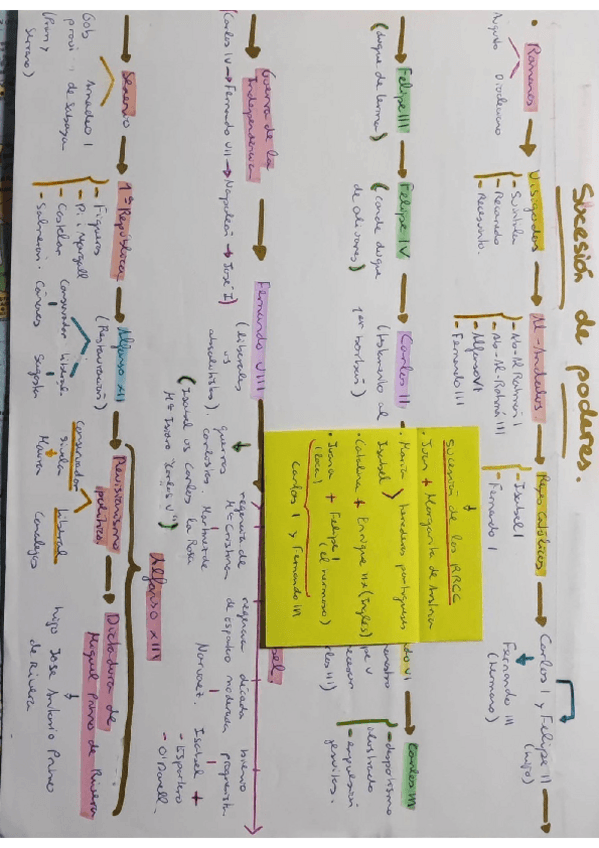 Sucesión de poderes.
Romanos
Augusto Diocleciano
Visigodos
- Suintila
- Recaredo
- Recesvinto.
Al-Andalus
- Ab-Al Rahman I
- Ab-Al-Rahmn III
- Alfonso VI
- Fernando III
Reyes Católicos
- Isabel I
- Fernando I
Carlos I y Felipe II
(hijo)
Fernando III
(hermano)
Felipe III
(duque de lerma)
Felipe IV
(conde duque
de olivares)
Carlos II
(testamento al
1er borbón)
Sucesión de los RRCC
• Juan + Margarita de Austria
• María
Isabel
herederas portugueses
• Catalina + Enrique IIX (ingles)
• Juana + Felipe I
(loca) (el hermoso)
Carlos I y Fernando III
Carlos III
- despotismo
ilustrado
- expulsión
jesuitas.
Guerra de la
Independencia
(Carlos IV → Fernando VII → Napoleón → José I)
Fernando VIII
(liberales
vs
absolutistas)
guerras
carlistas.
(Isabel vs Carlos
Mª Isidro "Carlos V")
regencia de
Mª Cristina
Martínez de
la Rosa
regencia
de espartero
década
moderada
Narvaez.
bienio
progresista.
Isabel +
- Espartero
- O'Donell.
Sexenio
Gob
provi
(Prim y
Serrano)
Amadeo I
de Saboya
1ª República
- Figueras
- Pi i Margall
- Castelar
- Salmerón.
Alfonso XII
(Restauración)
Conservador
Cánovas
liberal
Sagasta
Alfonso XIII
Revisionismo
político
Conservador
Silvela
Maura
Liberal
Canalejas
Dictadura de
Miguel Primo de Rivera
hijo José Antonio Primo
de Rivera